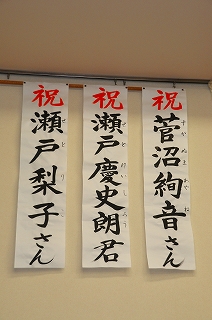 祝 菅沼絢音さん
祝 瀬戸慶史朗君
祝 瀬戸梨子さん